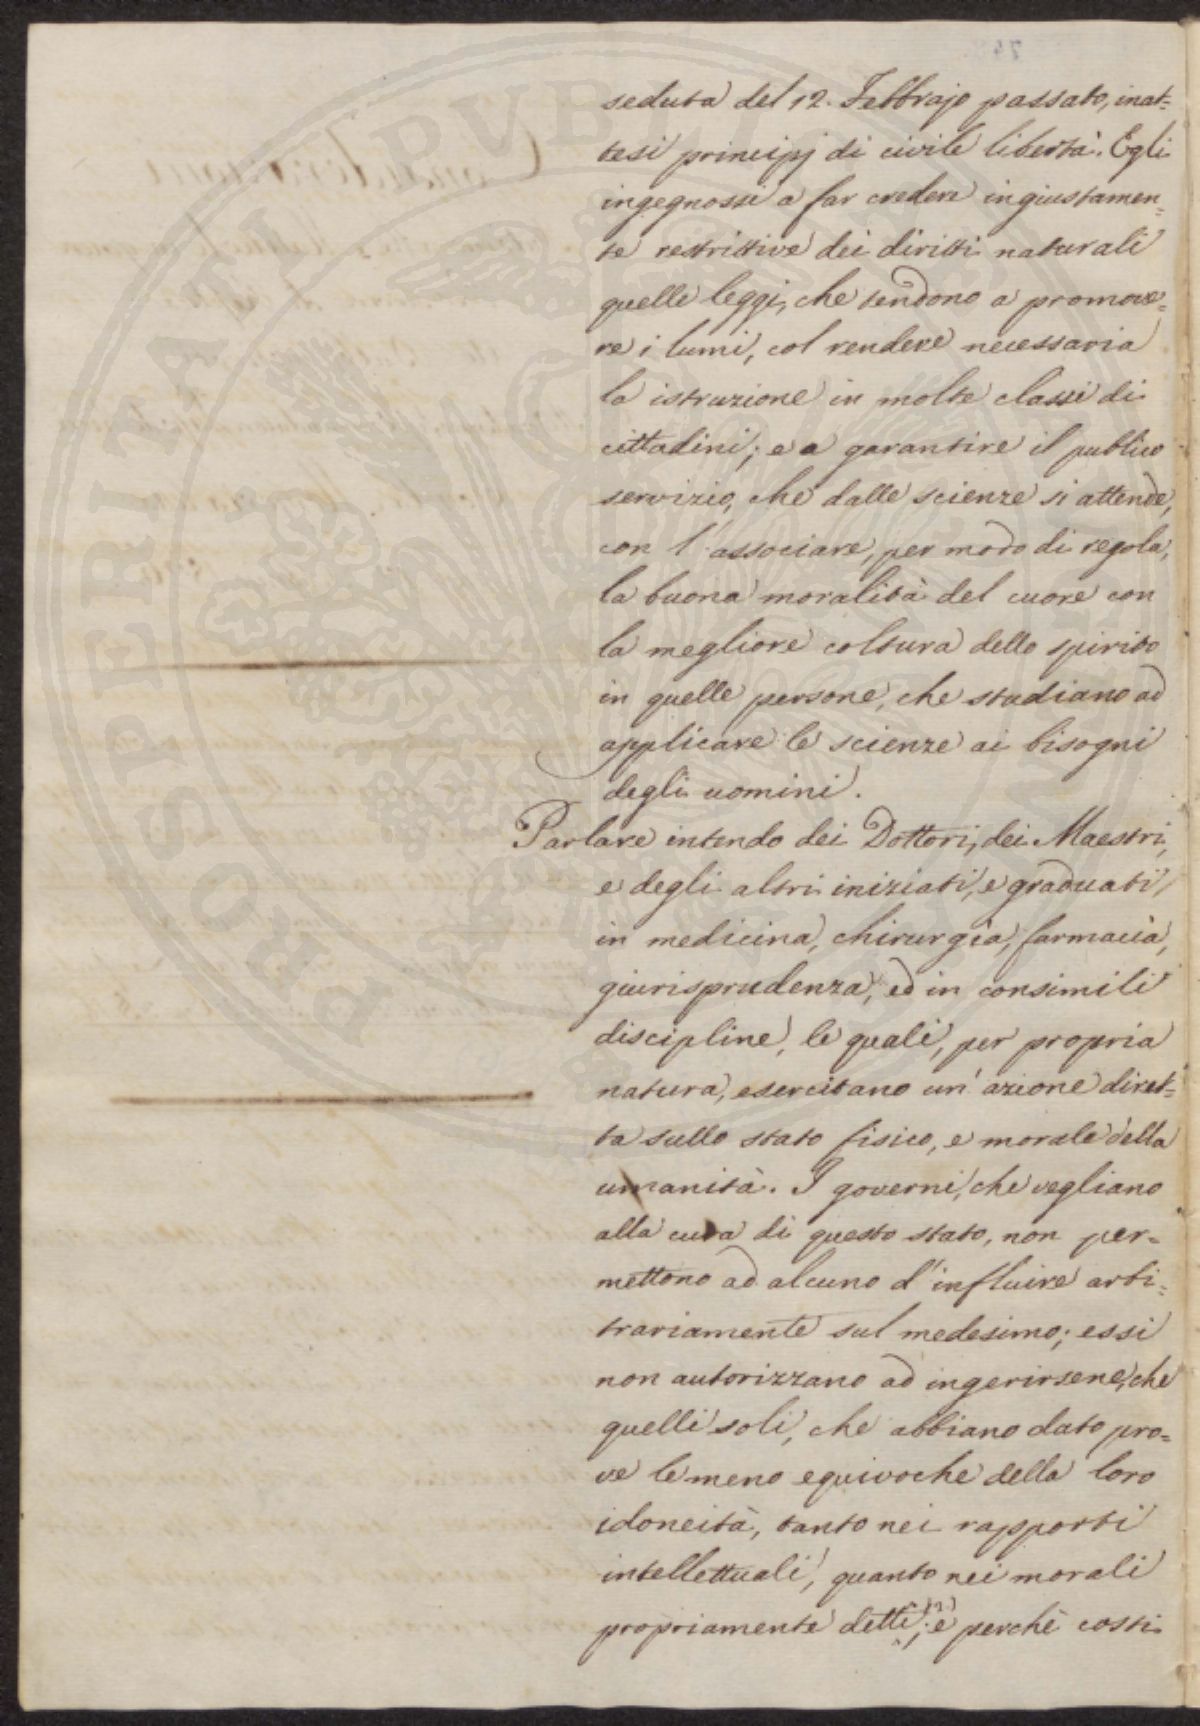 PROSPERITATI PVBLICAE
seduta del 12. Febbrajo passato, inat=
tesi principj di civile libertà. Egli
ingegnossi a far credere ingiustamen=
te restrittive dei diritti naturali
quelle leggi, che tendono a promove=
re i lumi, col rendere necessaria
la istruzione in molte classi di
cittadini; e a garantire il publico
servizio, che dalle scienze si attende,
con l'associare, per modo di regola,
la buona moralità del cuore con
la megliore coltura dello spirito
in quelle persone, che studiano ad
applicare le scienze ai bisogni
degli uomini.
Parlare intendo dei Dottori, dei Maestri,
e degli altri iniziati, e graduati,
in medicina, chirurgìa, farmacìa,
giurisprudenza, ed in consimili
discipline, le quali, per propria
natura, esercitano un'azione diret=
ta sullo stato fisico, e morale della
umanità. I governi, che vegliano
alla cura di questo stato, non per=
mettono ad alcuno d'influire arbi=
trariamente sul medesimo; essi
non autorizzano ad ingerirsene, che
quelli soli, che abbiano dato pro=
ve le meno equivoche della loro
idoneità, tanto nei rapporti
intellettuali, quanto nei morali
propriamente detti; e perchè costi